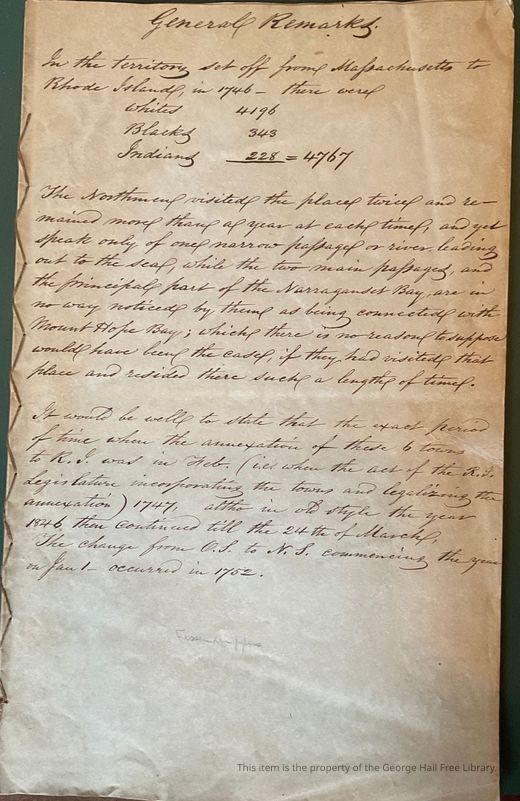 General Remarks.
In the territory set off from Massachusetts to
Rhode Island, in 1746 - there were
Whites 4196
Blacks 343
Indians 228 = 4767
The Northmen visited the place twice and re-
mained more than a year at each time, and yet
speak only of one narrow passage or river, leading
out to the sea, while the two main passages, and
the principal part of the Narraganset Bay, are in
no way noticed by them as being connected with
Mount Hope Bay; which there is no reason to suppose
would have been the case, if they had visited that
place and resided there such a length of time.
It would be well to state that the exact period
of time when the annexation of these 6 towns
to R.I. was in Feb. (i.e. when the act of the R.I.
Legislature incorporating the towns and legalizing the
annexation) 1747, altho in old style the year
1846 then continued till the 24th of March,
The change from O.S. to N.S. commencing the year
on Jan 1 - occurred in 1752.
This item is the property of the George Hail Free Library.